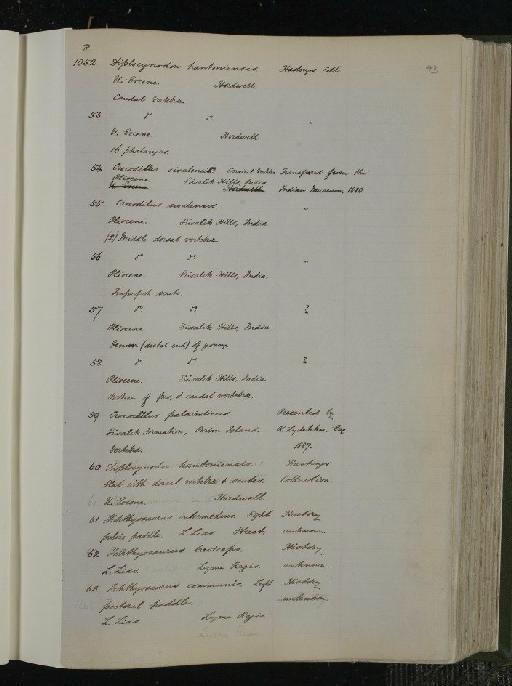 R 93
1052 Diplocynodon hantoniensis Hastings Coll.
U. Eocene. Hordwell
Caudal vertebra.
53 " "
U. Eocene Hordwell
phalanges.
54 Crocodilus sivalensis Transfered from the
Pliocene Siwalik Hills, India Indian Museum, 1880
55 Crocodilus "
Pliocene. Siwalik Hills, India
(2) Middle dorsal vertebra
56 " " "
Pliocene Siwalik Hills, India.
Imperfect scute.
57 " " ?
Pliocene Siwalik Hills, India
Femur (distal end) of young
58 " " ?
Pliocene. Siwalik Hills, India
Section of caudal vertebra.
59 Crocodilus palaeindicus Presented by
Siwalik Formation, Perim Island. R. Lydekker, Esq
Vertebra. 1887.
60 Diplocynodon hantoniensis. Hastings
Slab with dorsal vertebra & scutes. Collection
U. Eocene. Hordwell
61 Ichthyosaurus intermedius Right History
pelvic paddle. L. Lias Street unknown
62 Ichthyosaurus History
L. Lias. Lyme Regis unknown
63 Ichthyosaurus communis Left History
pectoral paddle. unknown
L. Lias Lyme Regis